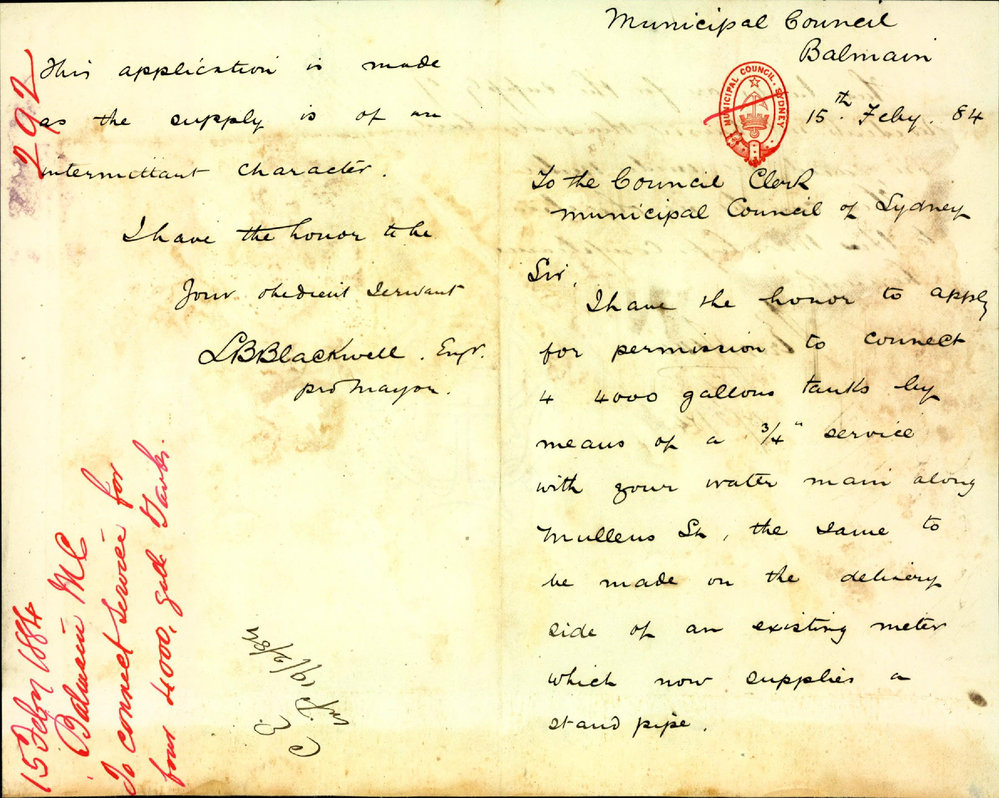 Municipal Council
Balmain
15th Feby. 84
MUNICIPAL COUNCIL. SYDNEY
To the Council Clerk
Municipal Council of Sydney
Sir,
I have the honor to apply
for permission to connect
4 4000 gallons tanks by
means of a 3/4" service
with your water main along
Mullens St, the same to
be made on the delivery
side of an existing meter
which now supplies a
stand pipe.
This application is made
as the supply is of an
intermittant character.
I have the honor to be
Your obedient servant
L B Blackwell. Engr.
pro Mayor.
292
15 Feby 1884
Balmain MC
To connect service for
four 4000, gall Tanks.
C E
19/2/84